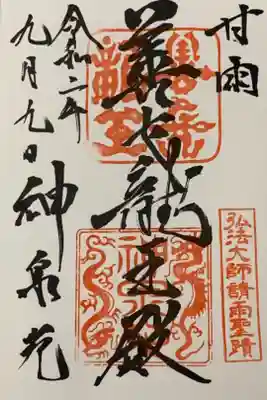 甘雨
弘法大師請雨聖蹟
善女龍王殿
令和二年
九月九日 神泉苑